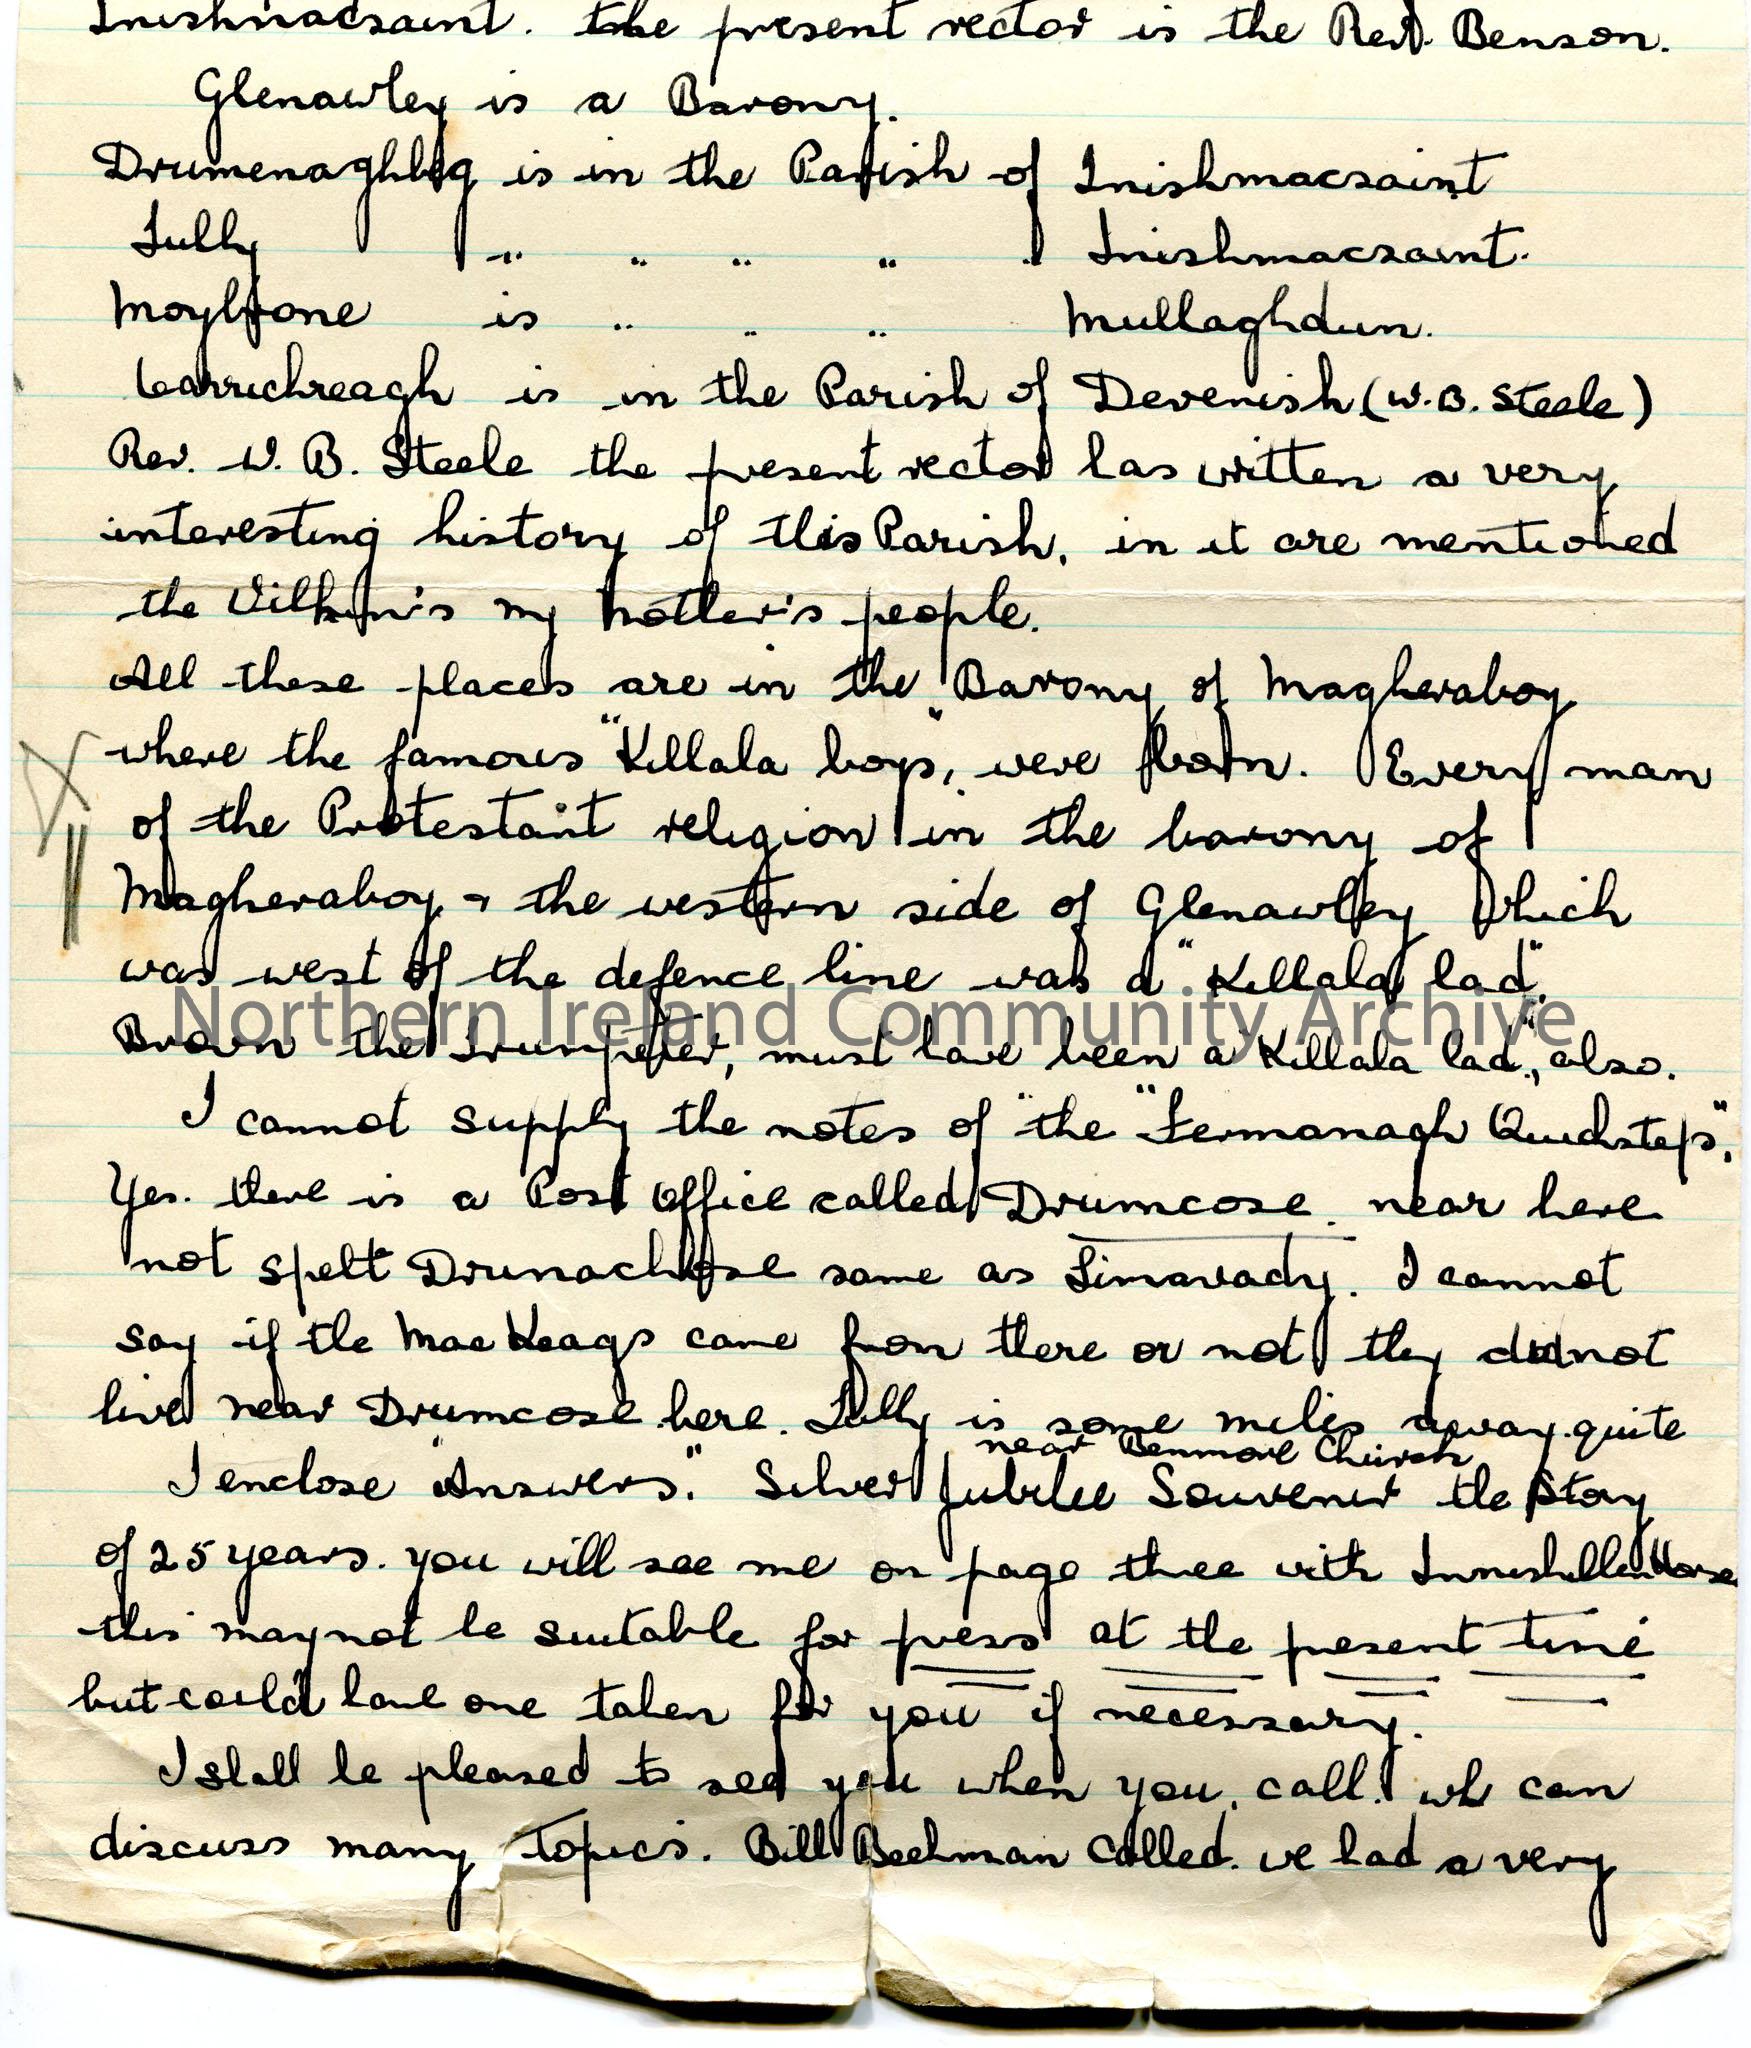 Inishmacsaint. the present rector is the Revd. Benson.
Glenawley is a Barony.
Drumenaghbeg is in the Parish of Inishmacsaint
Tully " " " " Inishmacsaint.
Moyltone is " " " Mullaghdun.
Carrickreagh is in the Parish of Devenish (W.B. Steele)
Rev. W. B. Steele the present rector has written a very
interesting history of this Parish, in it are mentioned
the Wilkin's my Mother's people.
All these places are in the Barony of Magheraboy
where the famous "Killala boys", were from. Every man
of the Protestant religion in the barony of
Magheraboy & the western side of Glenawley which
was west of the defence line was a "Killala lad".
Northern Ireland Community Archive
Brown the Trumpeter, must have been a "Killala lad", also.
I cannot supply the notes of "the "Fermanagh Quicksteps".
Yes. there is a Post Office called Drumcose near here
not spelt Drumachose same as Limavady. I cannot
say if the MacKeags came from there or not they did not
live near Drumcose here. Tully is some miles away quite
near Benmore Church
I enclose "Answers." Silver Jubilee Souvenir the Story
of 25 years. you will see me on page three with Inniskilling Horse
this may not be suitable for press at the present time
but could have one taken for you if necessary.
I shall be pleased to see you when you call. we can
discuss many topics. Bill Beekman called. we had a very